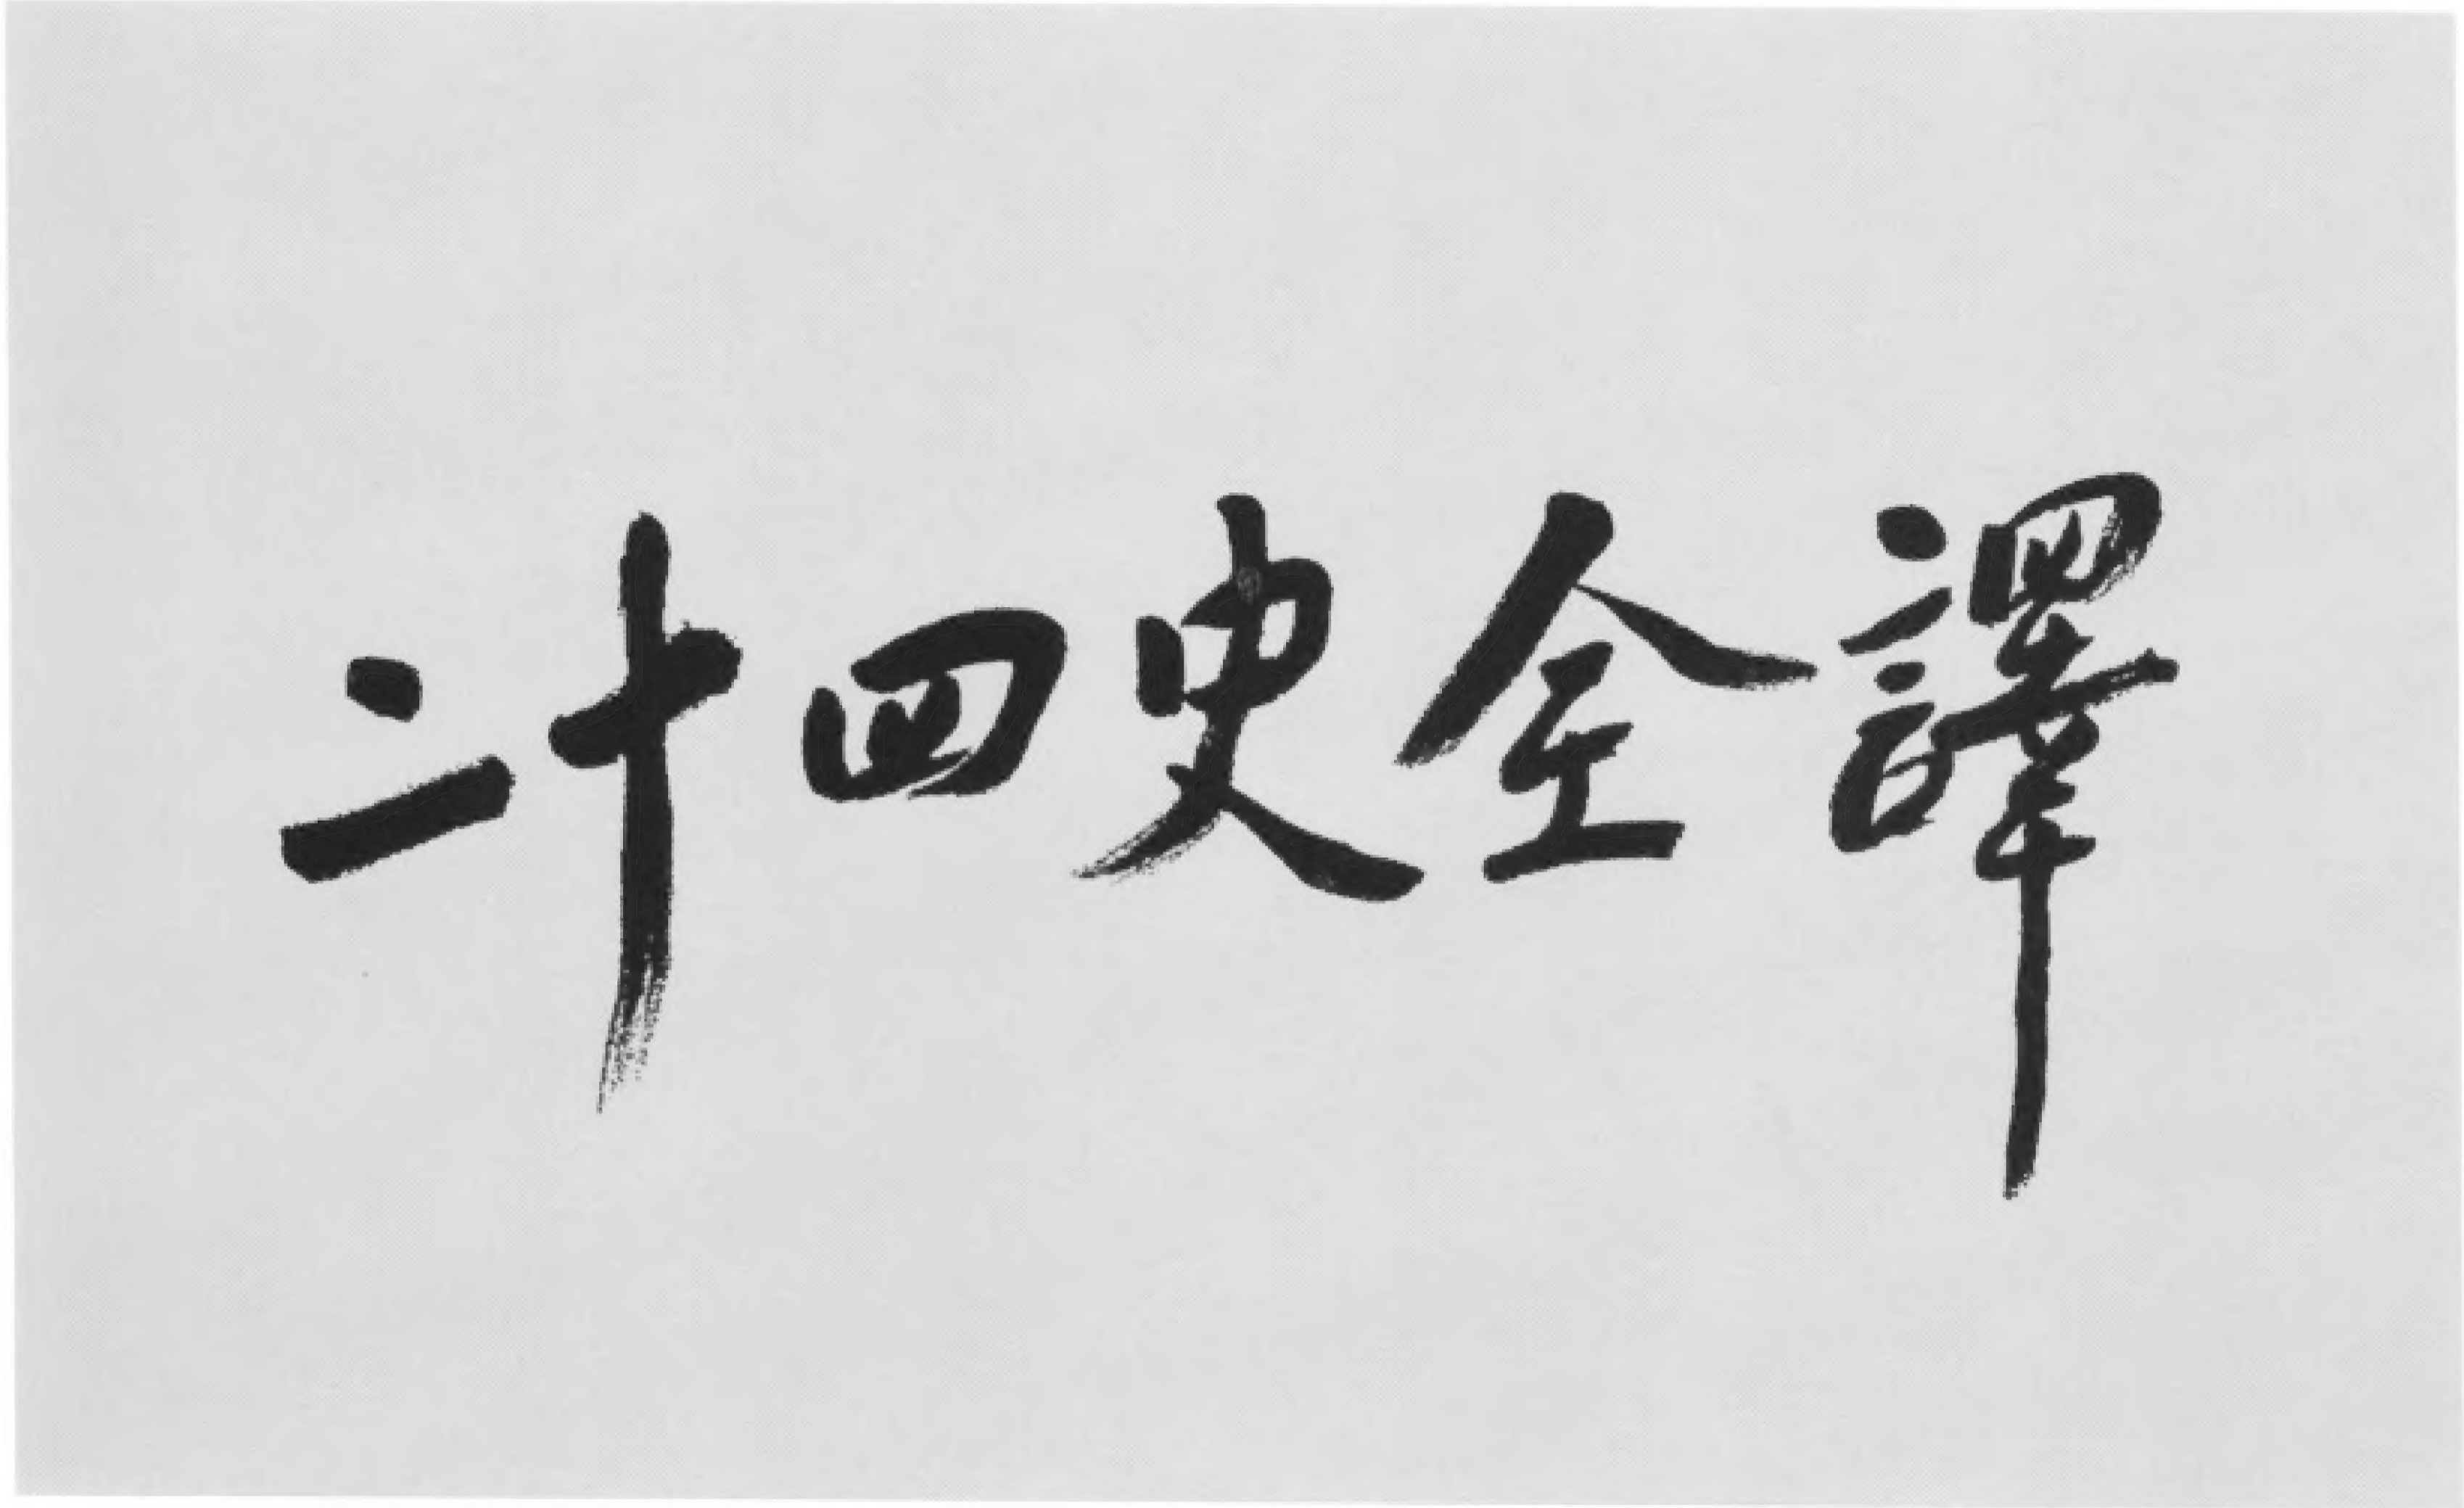 二十四史全譯